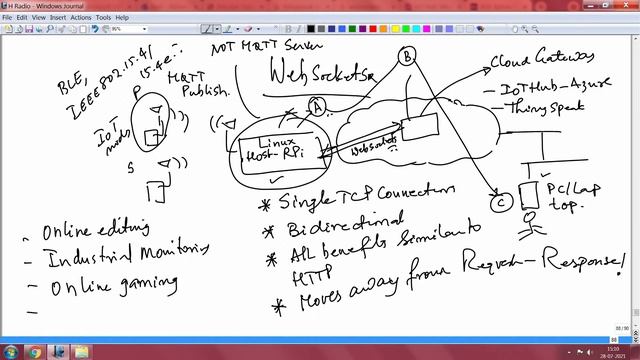 H Radio - Windows Journal
File Edit View Insert Actions Tools Help
95%
NOT MQTT Server
BLE,
IEEE802.15.4/
15.4e
P
MQTT
Publish.
WebSockets
A
B
C
Cloud Gateway
- IoTHub-Azure
- ThingSpeak
IoT
nodes
S
Linux
Host-RPi
Websockets
PC/Lap
top.
* Single TCP Connection
* Bidirectional
* All benefits similar to
HTTP
* Moves away from Request-Response!
- Online editing
- Industrial Monitoring
- Online gaming
-
88 / 90
88
15:10
28-07-2021